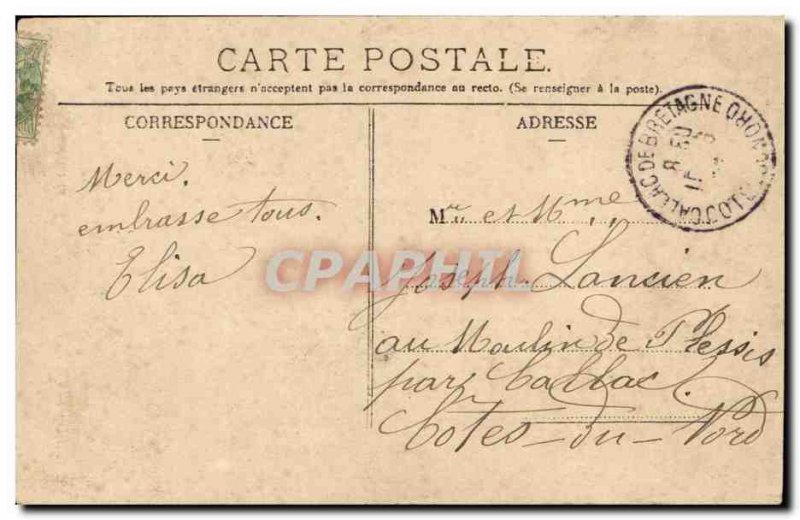 CARTE POSTALE.
Tous les pays étrangers n'acceptent pas la correspondance au recto. (Se renseigner à la poste).
CORRESPONDANCE
Merci.
embrasse tous.
Elisa
ADRESSE
Mr et Mme
Joseph Lancien
au Moulin de Plessis
par Callac.
Cotes-du-Nord
CALLAC DE BRETAGNE
CPAPHIL